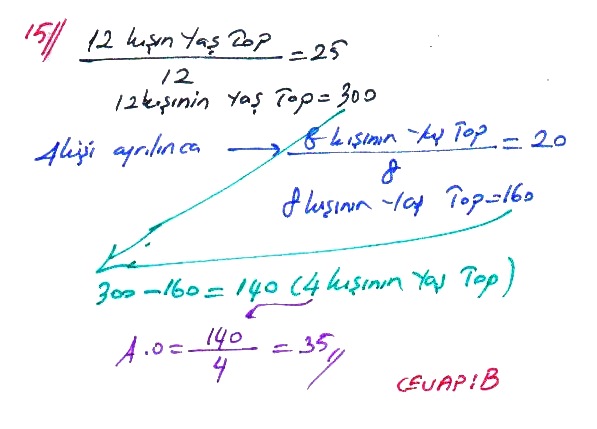 15// 12 kişin Yaş Top / 12 = 25
12 kişinin Yaş Top = 300
4 kişi ayrılınca → 8 kişinin Yaş Top / 8 = 20
8 kişinin Yaş Top = 160
300 - 160 = 140 (4 kişinin Yaş Top)
A.O = 140 / 4 = 35//
CEVAP: B